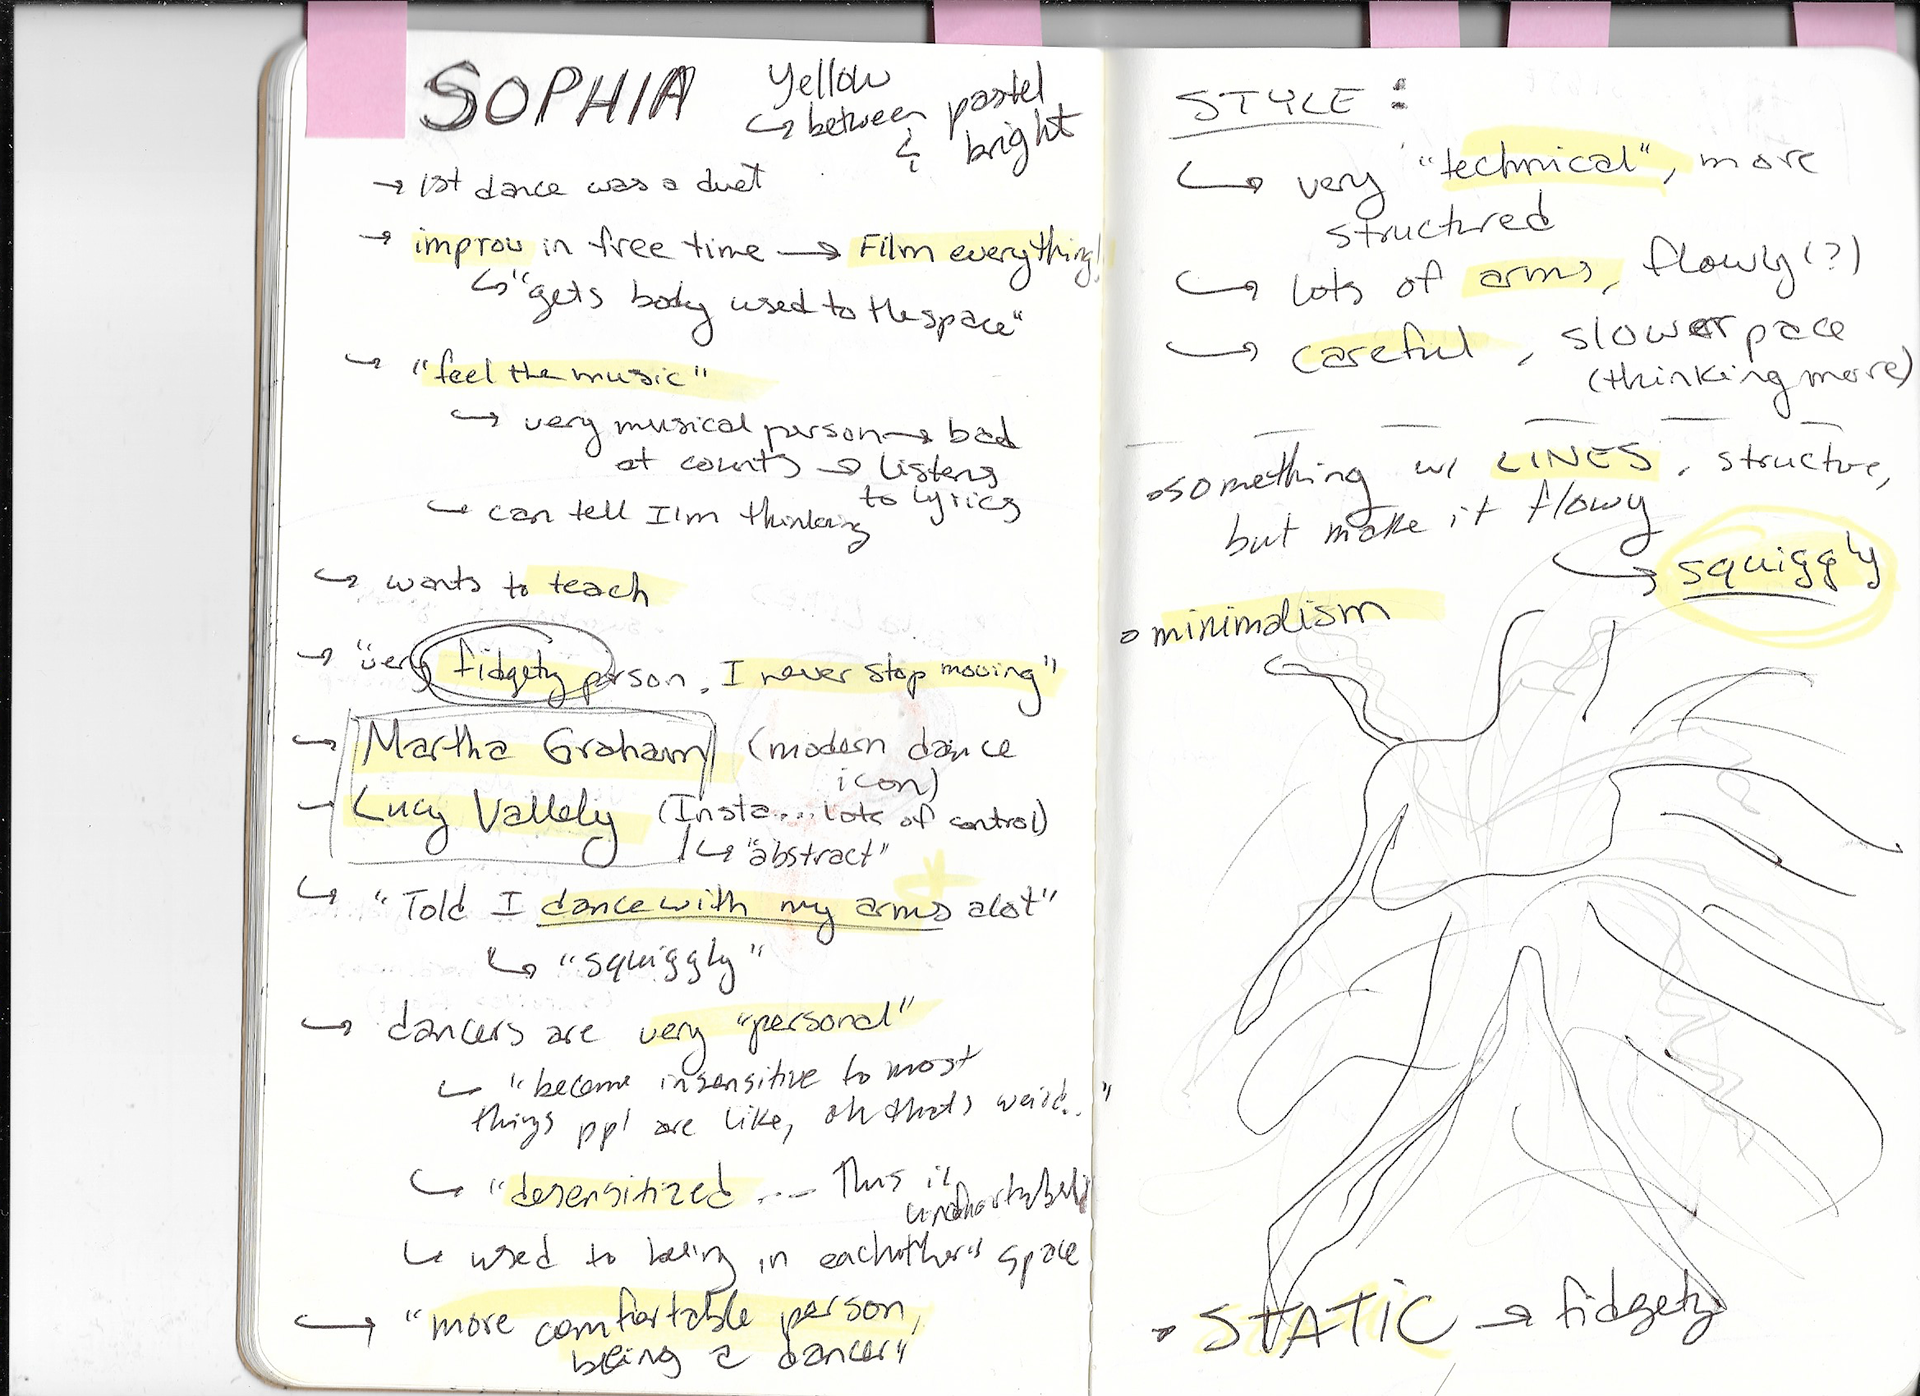 SOPHIA
yellow
↳ between pastel
& bright
→ 1st dance was a duet
→ improv in free time → Film everything!
↳ "gets body used to the space"
→ "feel the music"
↳ very musical person → bad
at counts → listens
to lyrics
↳ can tell I'm thinking
↳ wants to teach
→ "very fidgety person, I never stop moving"
→ Martha Graham (modern dance
icon)
→ Lucy Vallely (Insta... lots of control)
↳ "abstract"
↳ "Told I dance with my arms alot"
↳ "squiggly"
↳ dancers are very "personal"
↳ "become insensitive to most
things ppl are like, oh thats weird..."
↳ "desensitized .... This is
↳ used to being in eachother's space
↳ "more comfortable person,
being a dancer"
STYLE:
↳ very "technical", more
structured
↳ lots of arms, flowy (?)
↳ careful, slower pace
(thinking more)
•something w/ LINES, structure,
but make it flowy
↳ squiggly
• minimalism
• STATIC → fidgety